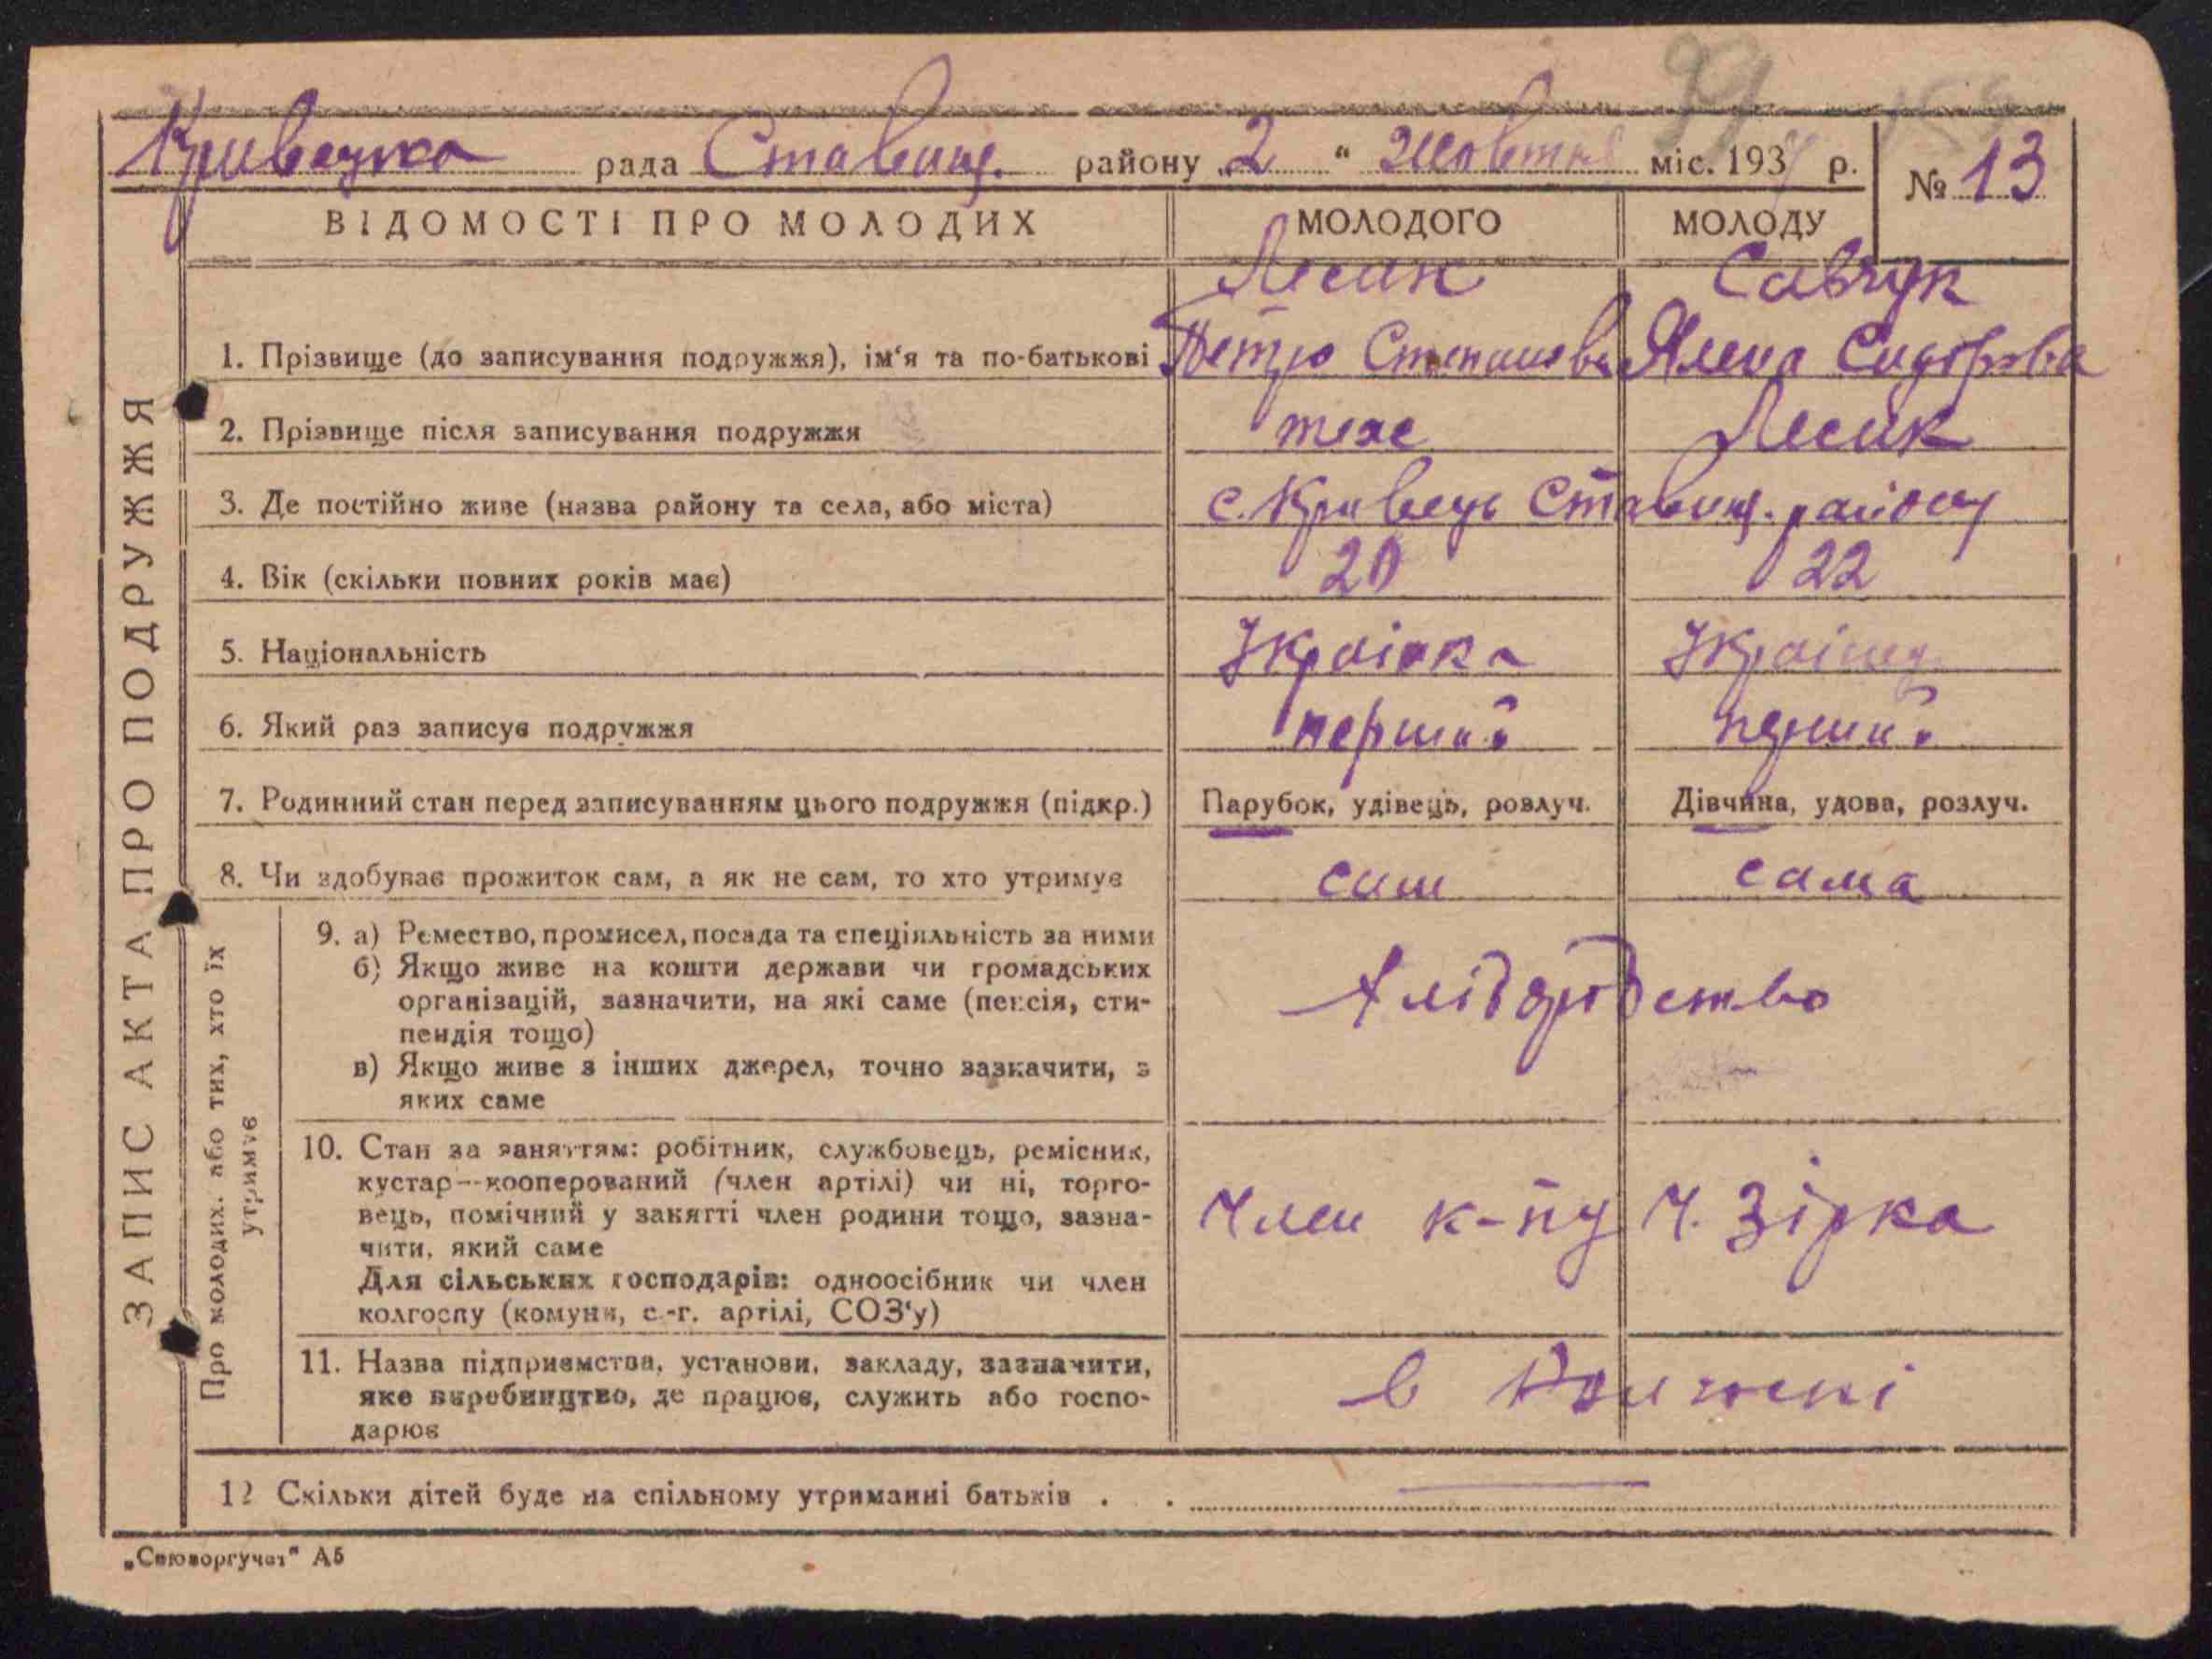 99
Кривецька рада Ставищ. району „2 “ жовтня міс. 193 р. № 13
ВІДОМОСТІ ПРО МОЛОДИХ МОЛОДОГО МОЛОДУ
Лесик Савчук
1. Прізвище (до записування подружжя), ім‘я та по-батькові Петро Степанов Ялена Сидорова
2. Прізвище після записування подружжя теж Лесик
3. Де постійно живе (назва району та села, або міста) с. Кривець Ставищ. району
4. Вік (скільки повних років має) 20 22
5. Національність Українка Україн
6. Який раз записує подружжя перший перший
7. Родинний стан перед записуванням цього подружжя (підкр.) Парубок, удівець, розлуч. Дівчина, удова, розлуч.
8. Чи здобуває прожиток сам, а як не сам, то хто утримує сам сама
9. а) Ремество, промисел, посада та спеціяльність за ними
б) Якщо живе на кошти держави чи громадських
організацій, зазначити, на які саме (пенсія, сти-
пендія тощо)
Хліборобство
в) Якщо живе з інших джерел, точно зазначити, з
яких саме
10. Стан за заняттям: робітник, службовець, ремісник,
кустар--кооперований (член артілі) чи ні, торго-
вець, помічний у занятті член родини тощо, зазна-
чити, який саме
Член к-пу Ч. Зірка
Для сільських господарів: одноосібник чи член
колгоспу (комуни, с.-г. артілі, СОЗ‘у)
11. Назва підприємства, установи, закладу, зазначити,
яке виробництво, де працює, служить або госпо-
дарює
в
12 Скільки дітей буде на спільному утриманні батьків . .
ЗАПИС АКТА ПРО ПОДРУЖЖЯ
Про молодих. або тих, хто їх
утримує
А5